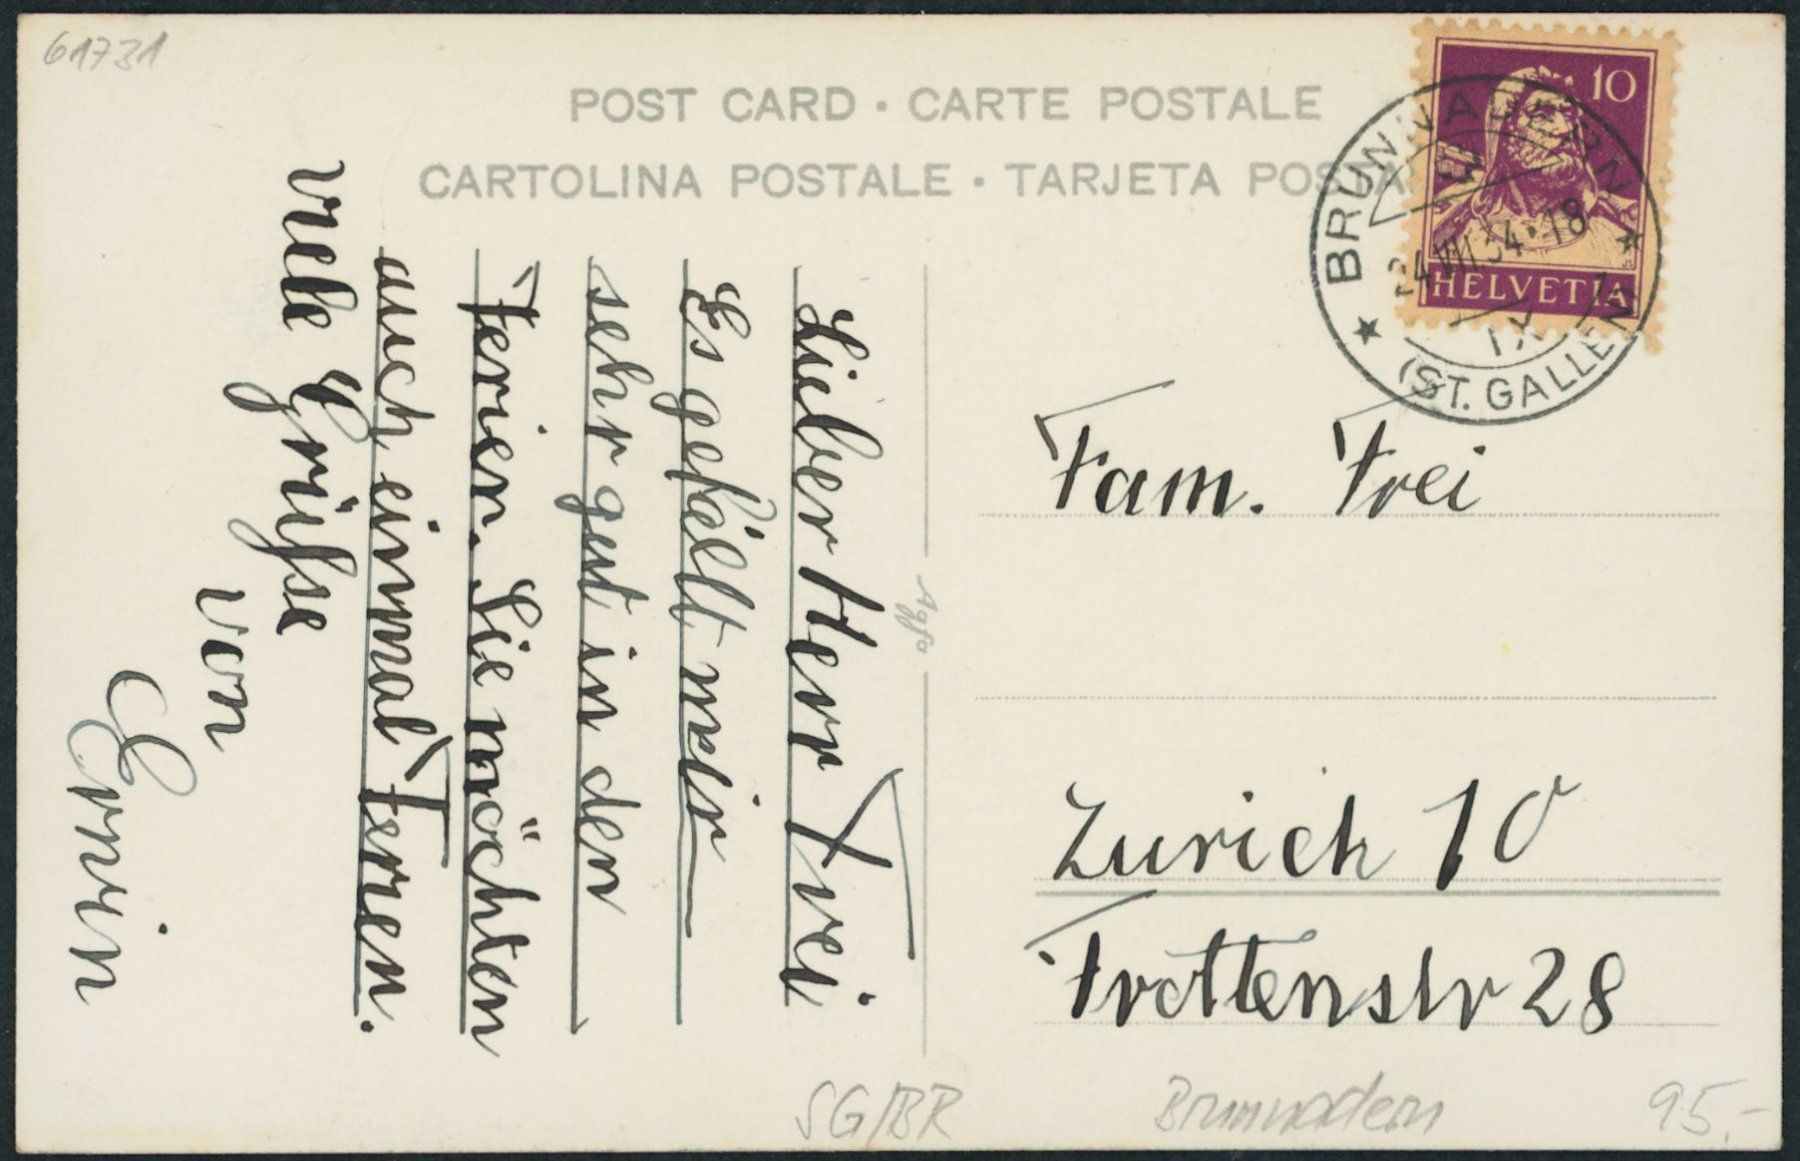 61731
POST CARD · CARTE POSTALE
CARTOLINA POSTALE · TARJETA POSTA
10
HELVETIA
BRUNNADERN
24.VIII.34·18
IX
(ST. GALLEN)
Lieber Herr Frei
Es gefällt meir
sehr gut in den
Ferien. Sie möchten
auch einmal Ferien.
viele Grüsse
von
Erwin
Agfa
Fam. Frei
Zurich 10
Trottenstr 28
SG/BR
Brunnadern
95.-